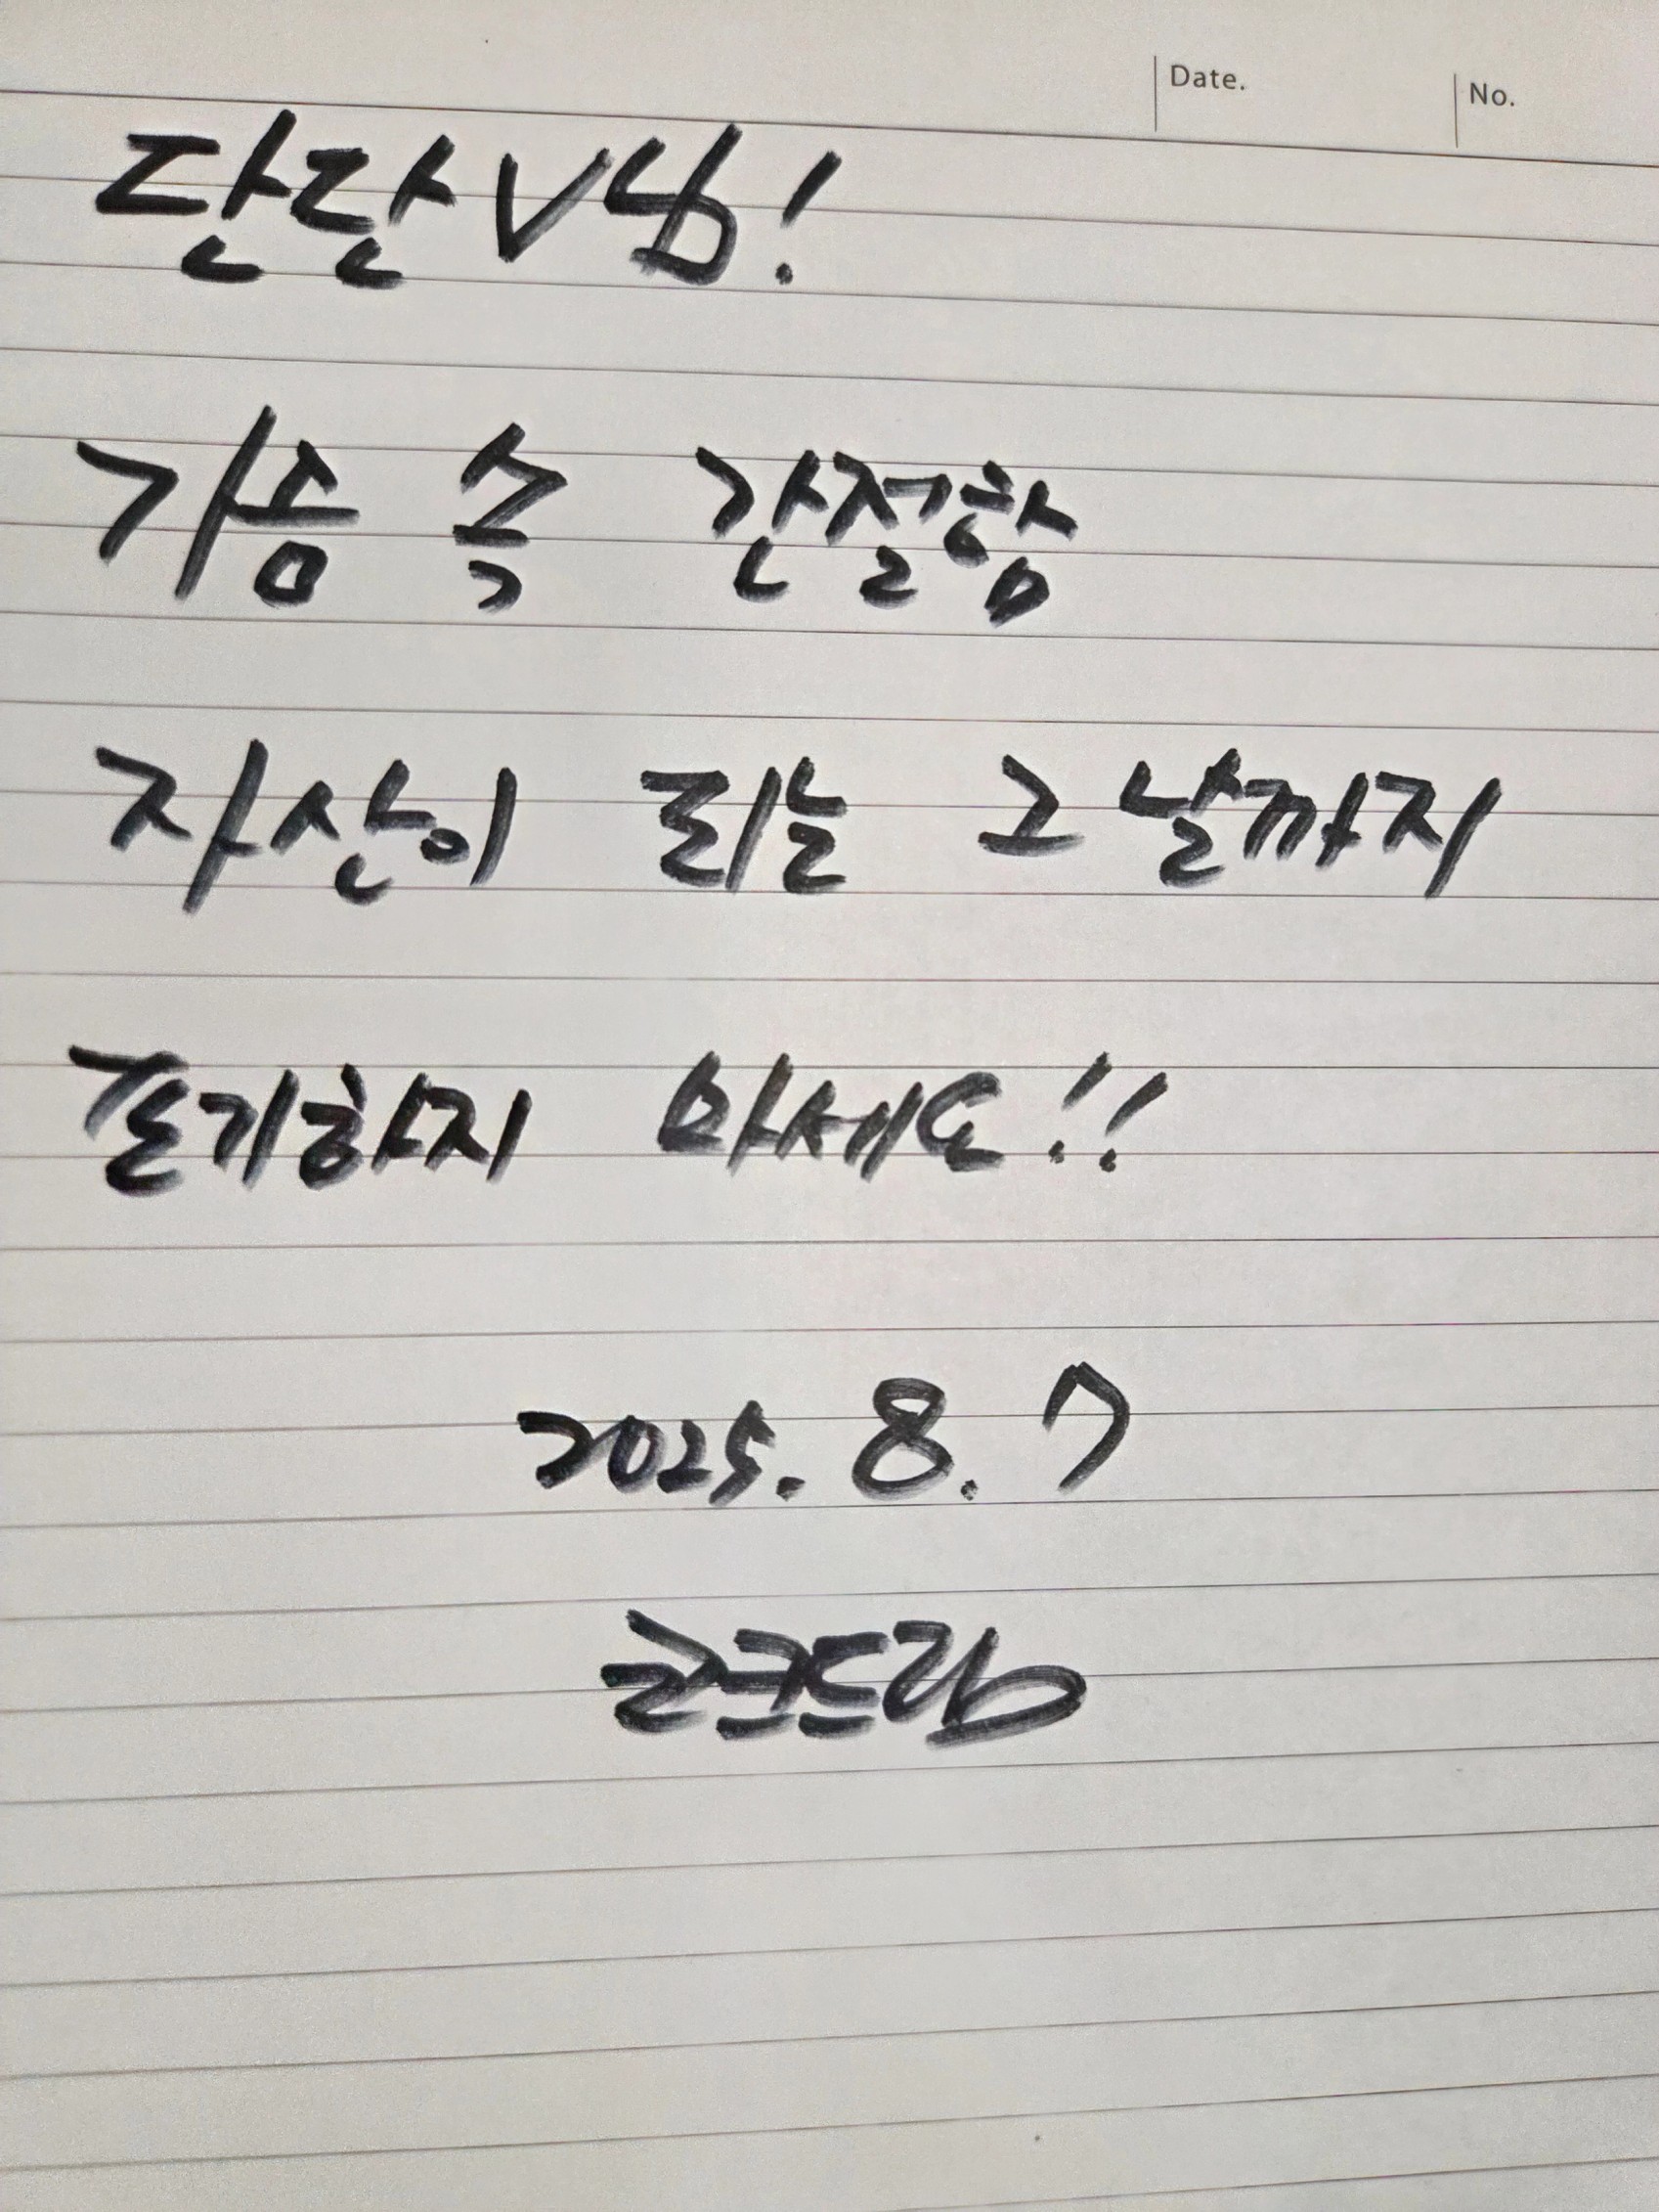 Date. No.
단단V님!
가슴 속 간절함
자산이 되는 그날까지
포기하지 마세요!!
2025. 8. 7